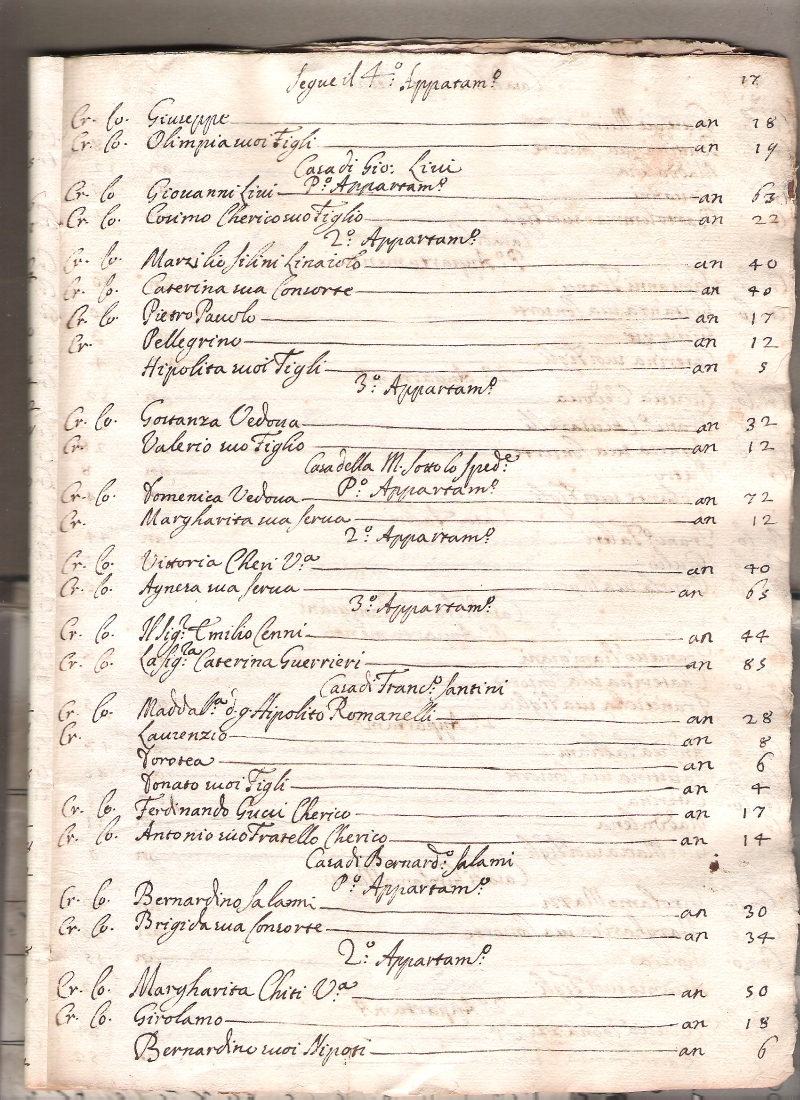 Segue il 4.º Appartam.º 17
Cr. Co. Giuseppe an 18
Cr. Co. Olimpia suoi Figli an 19
Casa di Gio: Livi
P.º Appartam.º
Cr. Co Giovanni Livi an 63
Cr. Co. Cosimo Cherico suo Figlio an 22
2.º Appartam.º
Cr. Co. Marzilio Silini Linaiolo an 40
Cr. Co. Caterina sua Consorte an 40
Cr. Co. Pietro Pauolo an 17
Cr. Pellegrino an 12
Hipolita suoi Figli an 5
3.º Appartam.º
Cr. Co. Gostanza Vedova an 32
Cr. Co. Valerio suo Figlio an 12
Casa della M. sotto lo Sped.e
P.º Appartam.º
Cr. Co. Domenica Vedova an 72
Cr. Margharita sua serva an 12
2.º Appartam.º
Cr. Co. Vittoria Cheri V.a an 40
Cr. Co. Agnesa sua serva an 65
3.º Appartam.º
Cr. Co. Il Sig.r Emilio Cenni an 44
Cr. Co. La Sig.ra Caterina Guerrieri an 85
Casa di Franc.º Santini
Cr. Co. Maddal.a d g Hipolito Romanelli an 28
Cr. Laurenzio an 8
Dorotea an 6
Donato suoi Figli an 4
Cr. Co. Ferdinando Gucci Cherico an 17
Cr. Co. Antonio suo Fratello Cherico an 14
Casa di Bernard.º Salami
P.º Appartam.º
Cr. Co. Bernardino Salami an 30
Cr. Co. Brigida sua Consorte an 34
2.º Appartam.º
Cr. Co. Margharita Chiti V.a an 50
Cr. Co. Girolamo an 18
Bernardino suoi Nipoti an 6